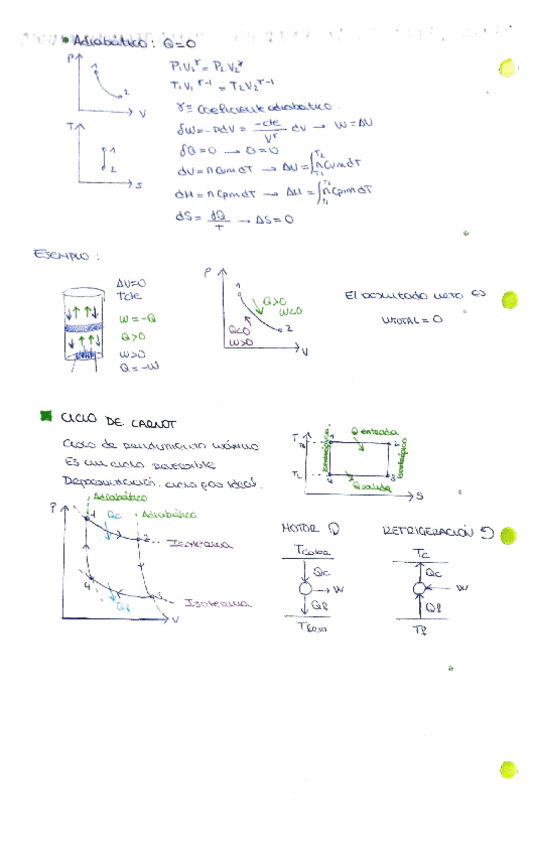 • Adiabático: Q=0
P
1
2
V
P₁V₁^γ = P₂V₂^γ
T₁V₁^γ-1 = T₂V₂^γ-1
γ ≡ Coeficiente adiabático.
T
1
2
S
δW=-PdV = -cte/V^γ dV → W=ΔU
δQ=0 → Q=0
dU=nCvmdT → ΔU=∫T₁T₂ nCvmdT
dH=nCpmdT → ΔH=∫T₁T₂ nCpmdT
dS= dQ/T → ΔS=0
EJEMPLO:
ΔU=0
Tcte
W=-Q
Q>0
W>0
Q=-W
P
1
2
V
Q>0
W<0
Q<0
W>0
El resultado neto es
WTOTAL=0
CICLO DE CARNOT
Ciclo de rendimiento máximo
Es un ciclo reversible
Demostración: ciclo gas ideal.
T
S
1
2
3
4
Q entrada
Q salida
Isentrópico
P
V
Adiabático
Adiabático
1
2
3
4
Qc
Qf
Isoterma
Isoterma
MOTOR ↻
Qc
W
Qf
REFRIGERACIÓN ↺
Tc
Qc
W
Qf
Tf